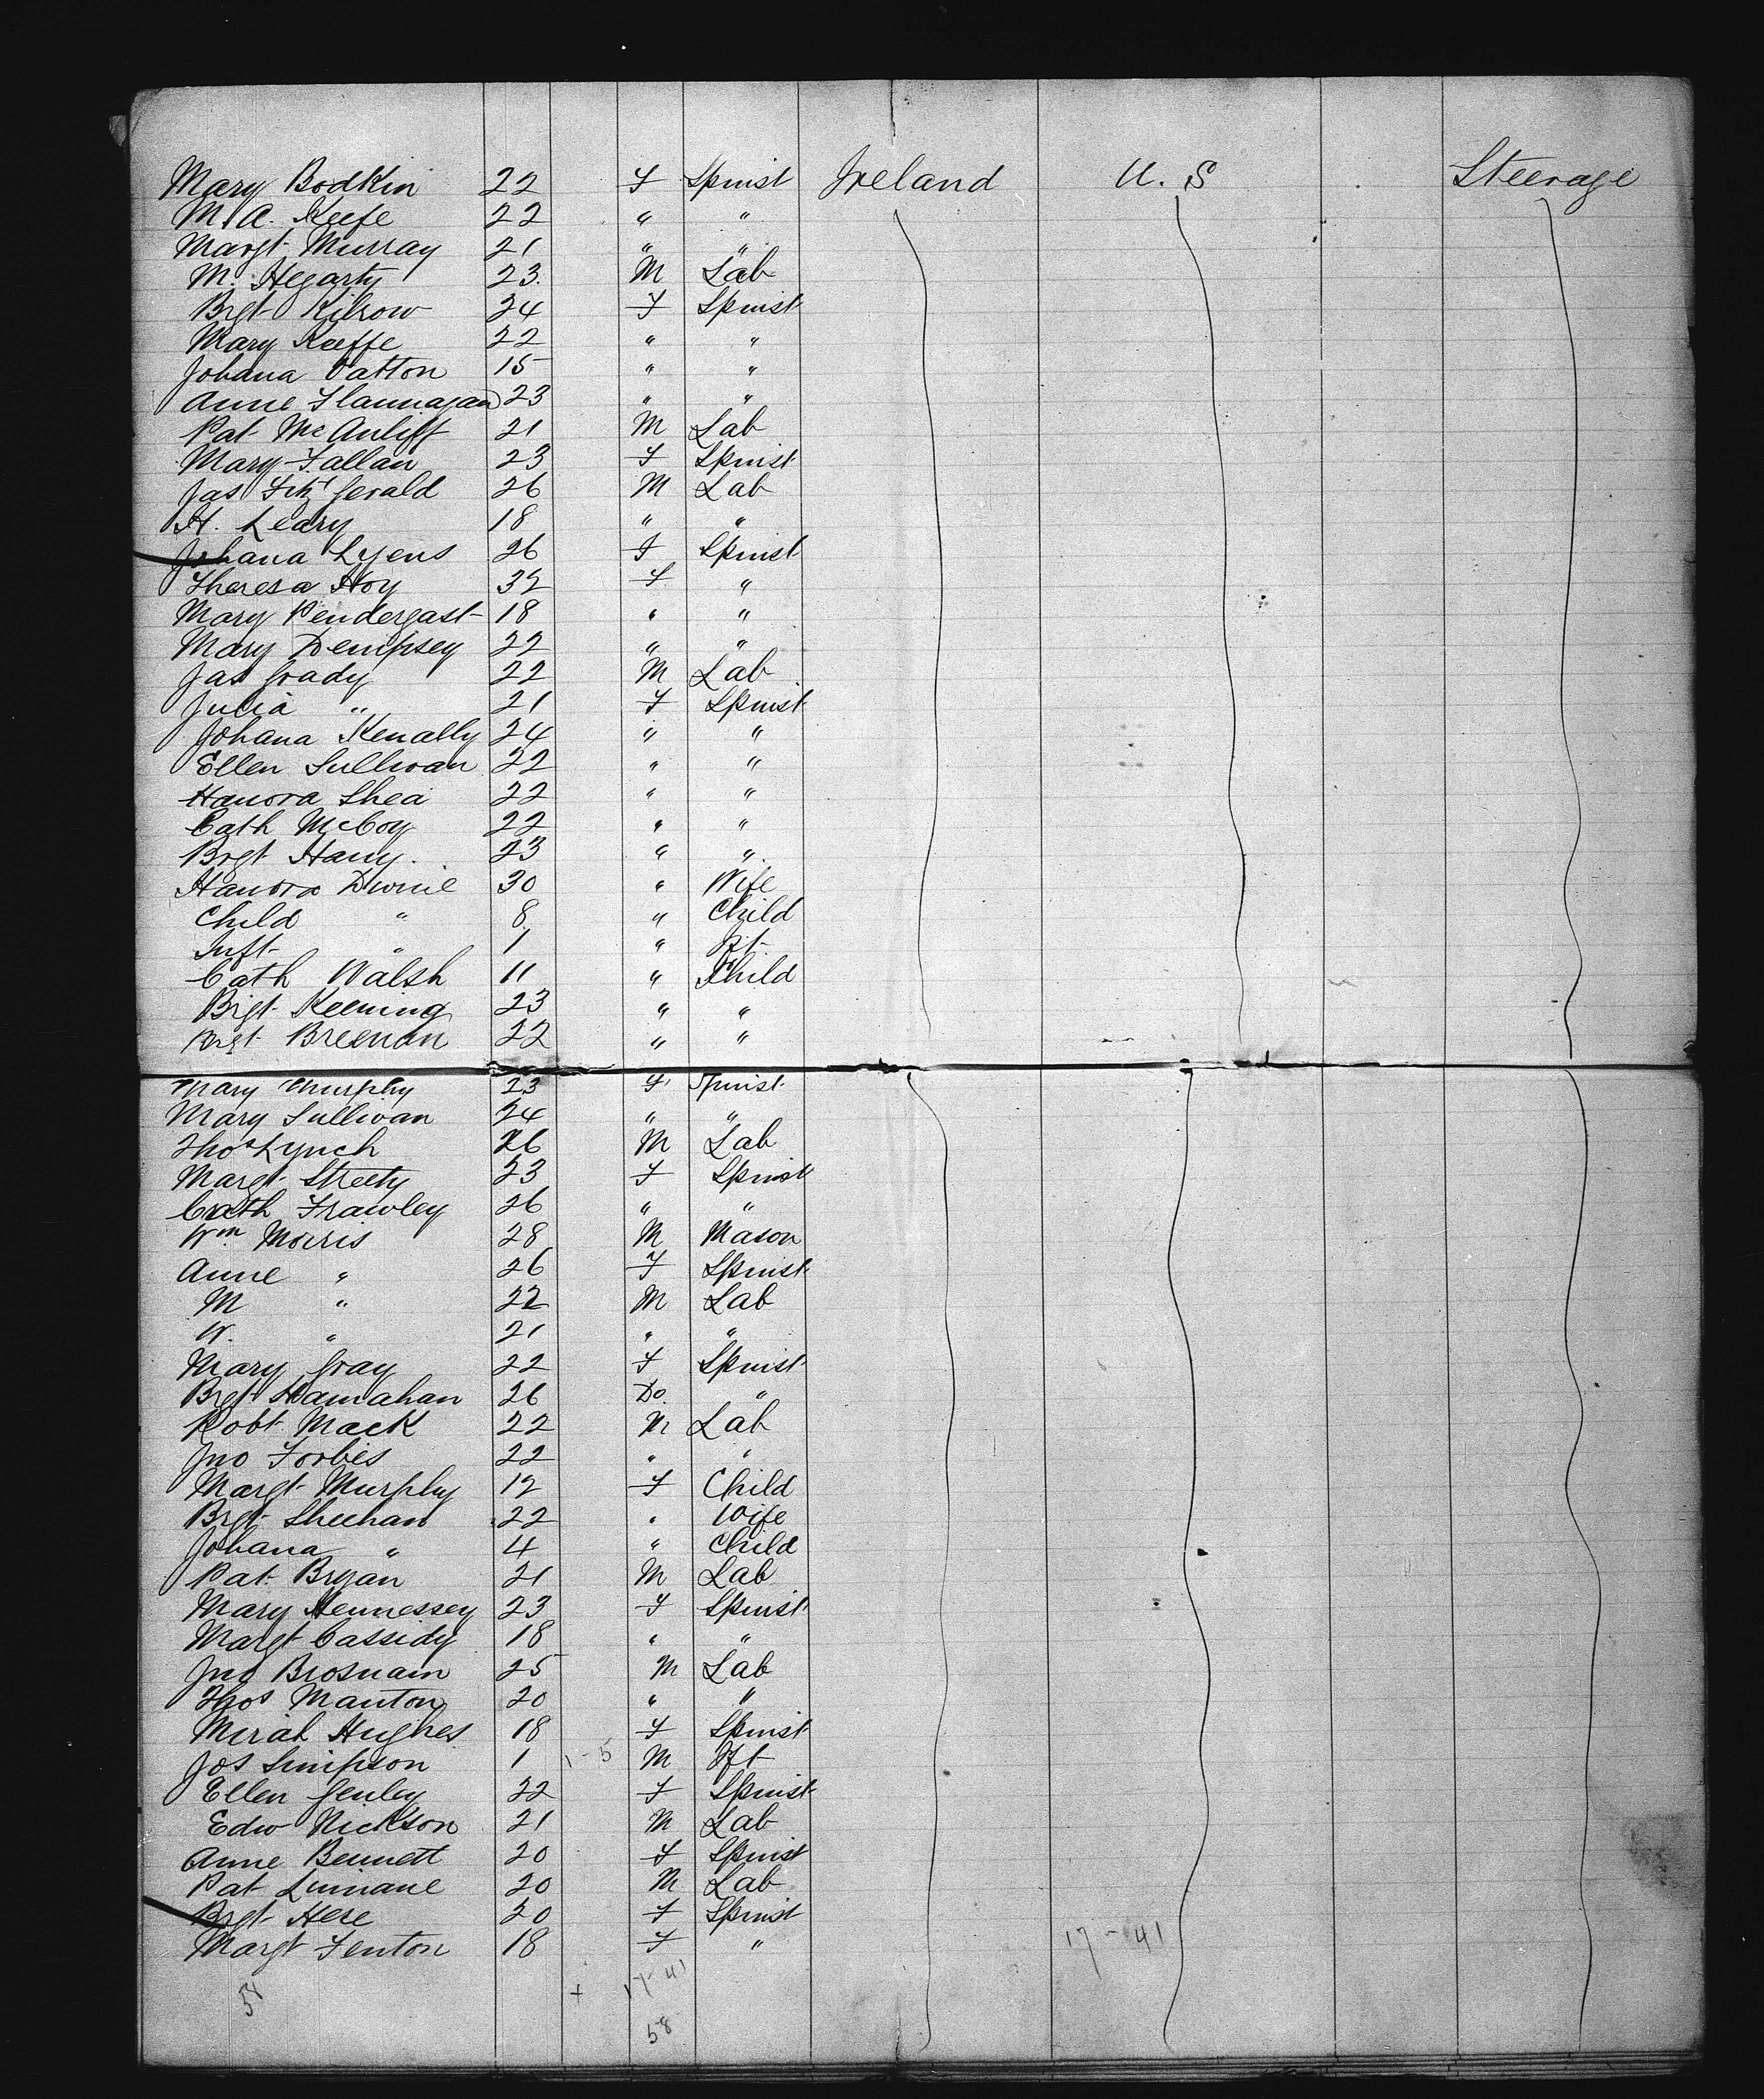 Mary Bodkin 22 F Spinst Ireland U. S Steerage
M. A. Keefe 22 " "
Margt Murray 21 " "
M. Hegarty 23. M Lab
Brgt Kilrow 24 F Spinst
Mary Keeffe 22 " "
Johana Patton 15 " "
Anne Flannagan 23 " "
Pat McAuliff 21 M Lab
Mary Fallan 23 F Spinst
Jas Fitzgerald 26 M Lab
H. Leary 18 " "
Johana Lyens 26 F Spinst
Theresa Hoy 32 F "
Mary Pendergast 18 " "
Mary Dempsey 22 " "
Jas Grady 22 M Lab
Julia " 21 F Spinst
Johana Kenally 24 " "
Ellen Sullivan 22 " "
Hanora Shea 22 " "
Cath McCoy 22 " "
Brgt Hany. 23 " "
Hanora 30 " Wife
Child " 8 " Child
Inft " 1 "
Cath Walsh 11 " Child
Brgt Keening 23 " "
Brgt Breenan 22 " "
Mary Murphy 23 F Spinst
Mary Sullivan 24 " "
Thos Lynch 26 M Lab
Margt Streety 23 F Spinst
Cath Frawley 26 " "
Wm Morris 28 M Mason
Anne " 26 F Spinst
M " 22 M Lab
W. " 21 " "
Mary Gray 22 F Spinst
Brgt 26 Do. "
Robt Mack 22 M Lab
Jno Forbes 22 " "
Margt Murphy 12 F Child
Brgt Sheehan 22 " Wife
Johana " 4 " Child
Pat Bryan 21 M Lab
Mary Hennessey 23 F Spinst
Margt Cassidy 18 " "
Jno Brosnain 25 M Lab
Thos Manton 20 " "
Mirah Hughes 18 F Spinst
Jos Simpson 1 1-5 M
Ellen Genley 22 F Spinst
Edw Nickson 21 M Lab
Anne Bennett 20 F Spinst
Pat Linnane 20 M Lab
Brgt Here 20 F Spinst
Margt Fenton 18 F " 17-41
58 + 17-41
58